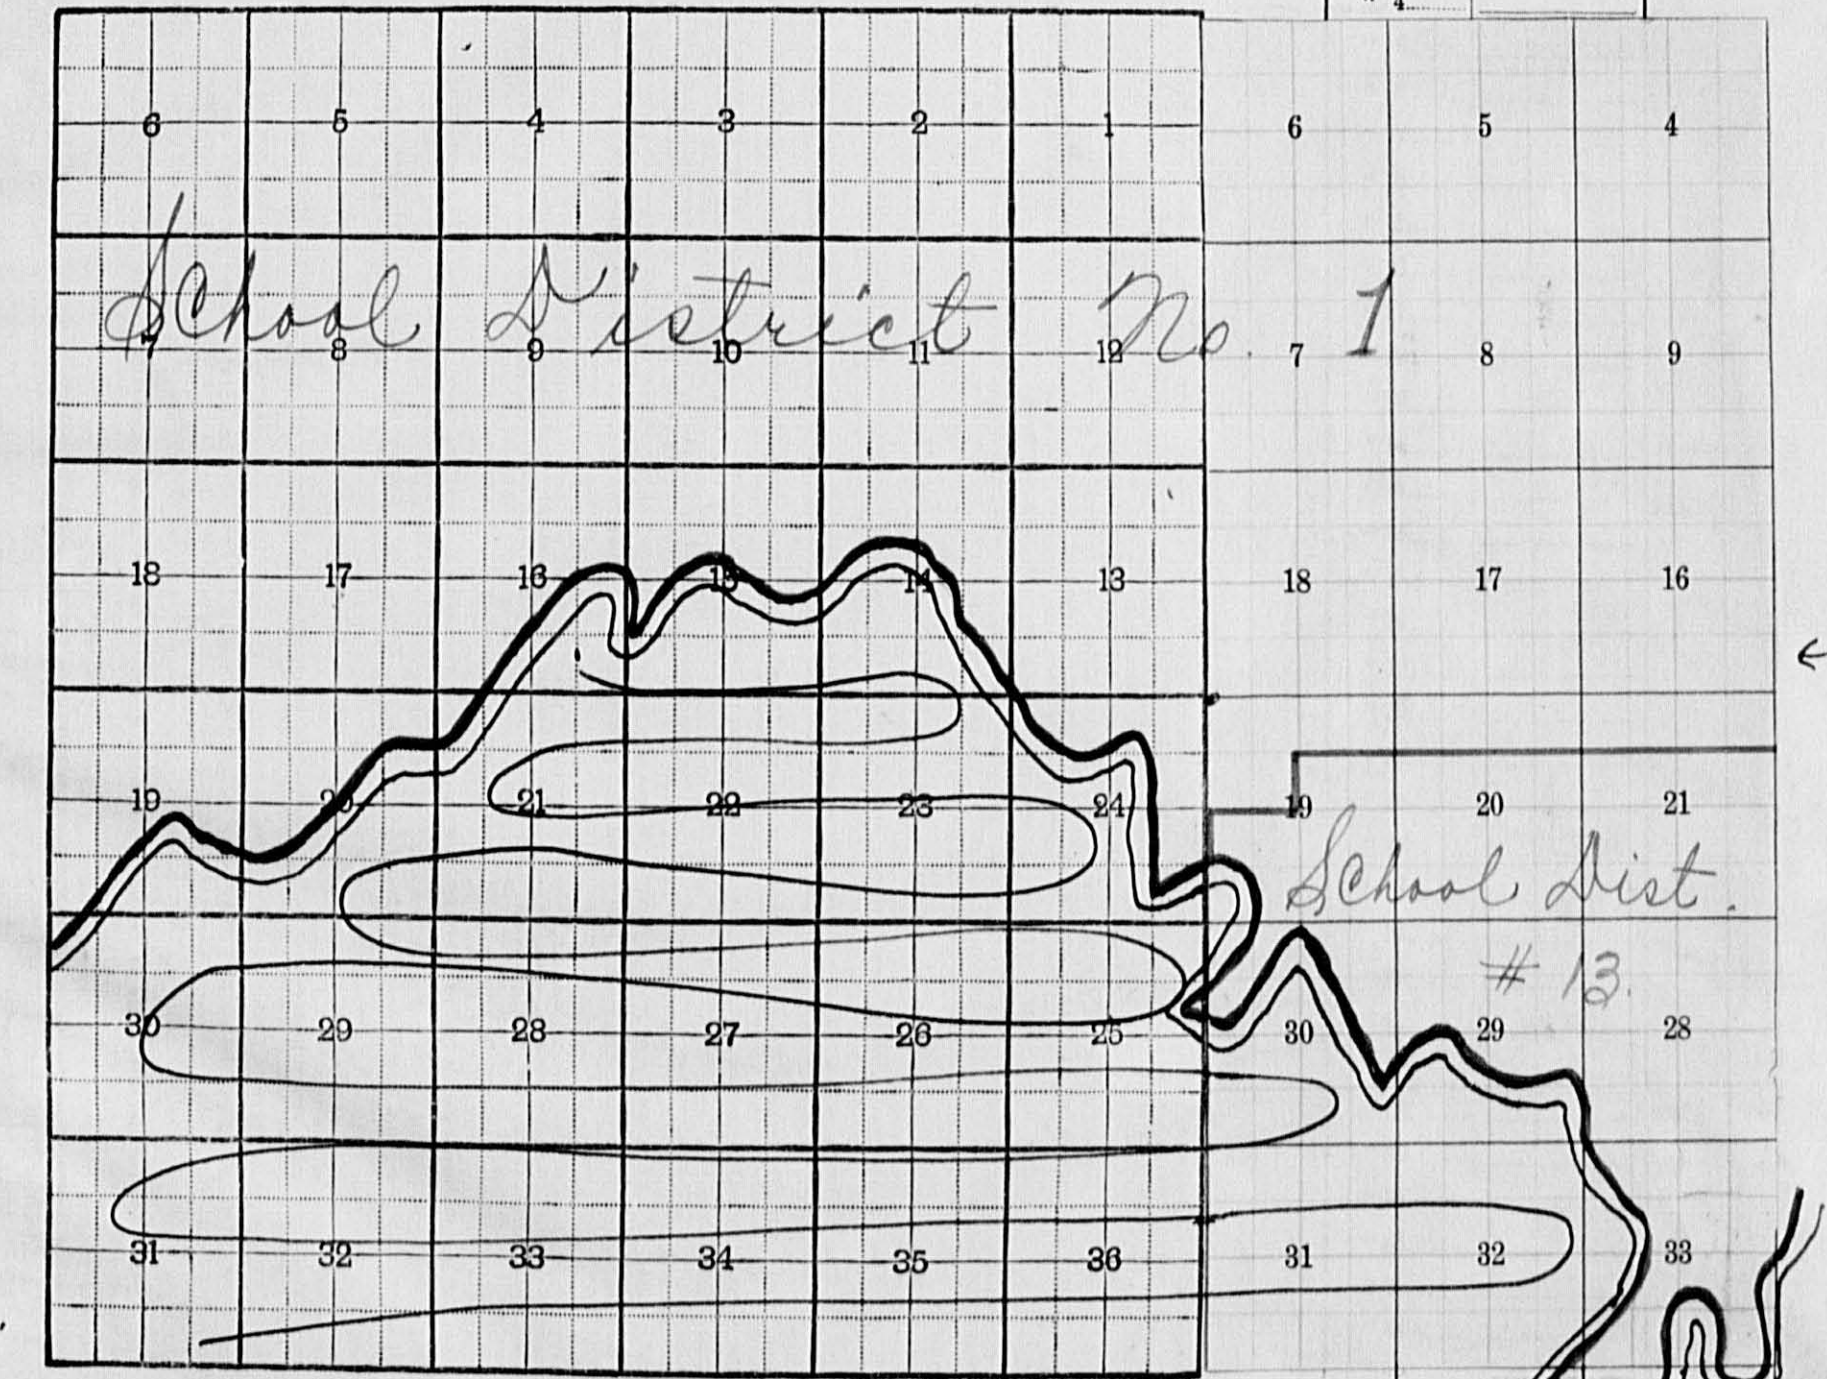 4
6 5 4 3 2 1 6 5 4
School District No. 1
7 8 9 10 11 12 7 8 9
18 17 16 15 14 13 18 17 16
19 20 21 22 23 24 19 20 21
School Dist.
# 13.
30 29 28 27 26 25 30 29 28
31 32 33 34 35 36 31 32 33